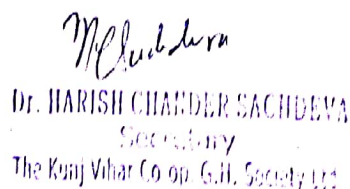 Dr. HARISH CHANDER SACHDEVA
Secretary
The Kunj Vihar Co op. G.H. Society Ltd.